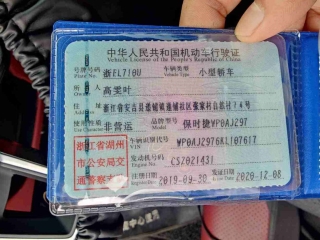 中华人民共和国机动车行驶证
Vehicle License of the People's Republic of China
号牌号码 浙EL710U 车辆类型 小型轿车
Plate No. Vehicle Type
所有人 高雯叶
Owner
住址 浙江省安吉县递铺镇
Address
使用性质 非营运 品牌型号 保时捷WP0AJ297
Use Character Model
浙江省湖州
市公安局交
通警察支队
车辆识别代号 WP0AJ2976KL107617
VIN
发动机号码 CSZ021431
Engine No.
注册日期 2019-09-30 发证日期 2020-12-08